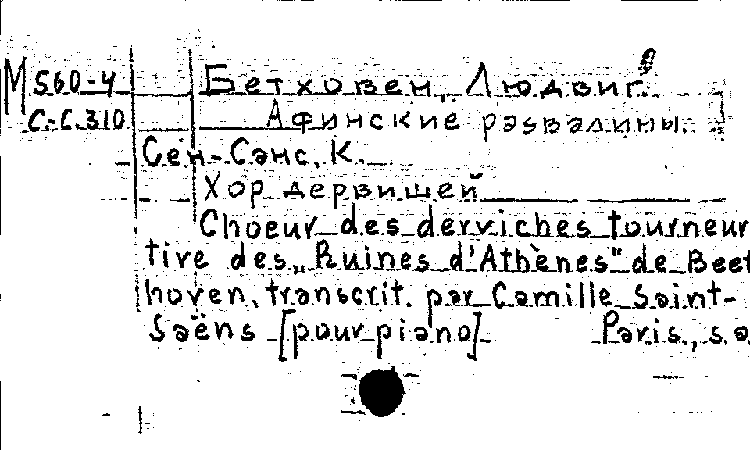 М 560-4 Бетховен, Людвиг.
С-С.310 Афинские развалины.
Сен-Санс, К.
Хор дервишей
Choeur des derviches tourneur
tire des „Ruines d'Athènes" de Beet
hoven, transcrit. par Camille Saint-
Saëns [pour piano] Paris, s.a